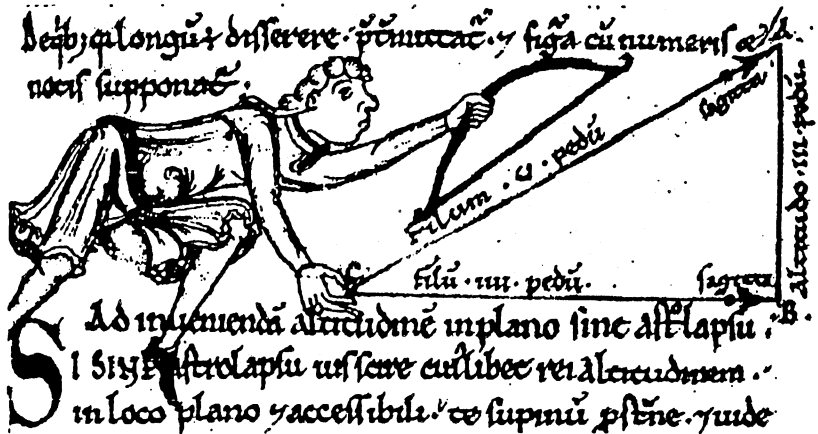 longũ disserere. ⁊ figũa cũ numeris &
notis supponat̃.
A
sagitta
Filum . v . pedũ
Altitudo . III . pedũ.
C
filũ . iiii . pedũ.
sagitta
B.
Ad inueniendã altitudinẽ in plano sine astrolapsu.
SI SINE astrolapsu uis scire cuiuslibet rei altitudinem.
in loco plano ⁊ accessibili. te supinũ ⁊ uide